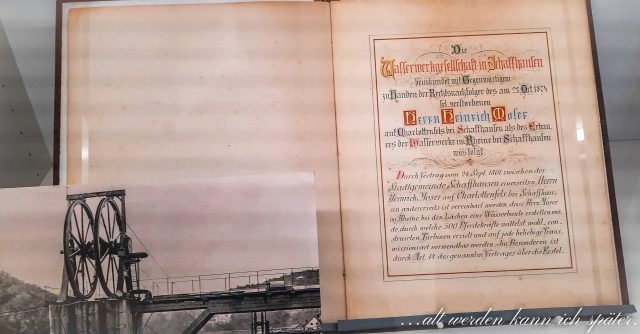 Die
Wasserwerkgesellschaft in Schaffhausen
beurkundet mit Gegenwärtigem
zu Handen der Rechtsnachfolger des am 23. Oct. 1874
sel. verstorbenen
Herrn Heinrich Moser
auf Charlottenfels bei Schaffhausen als des Erbau-
ers der Wasserwerke im Rheine bei Schaffhausen
was folgt:
Durch Vertrag vom 24. Sept. 1861 zwischen der
Stadtgemeinde Schaffhausen einerseits u. Herrn
Heinrich Moser auf Charlottenfels bei Schaffhau-
sen anderseits ist vereinbart worden, dass Herr Moser
im Rheine bei den Lächen eine Wasserbaute erstellen wer-
de, durch welche 500 Pferdekräfte mittelst wohl con-
struirten Turbinen erzielt und auf jede beliebige Trans-
missionsart verwendbar werden. Im Besonderen ist
durch Art. 14 des genannten Vertrages über die Erstel-
...alt werden kann ich später